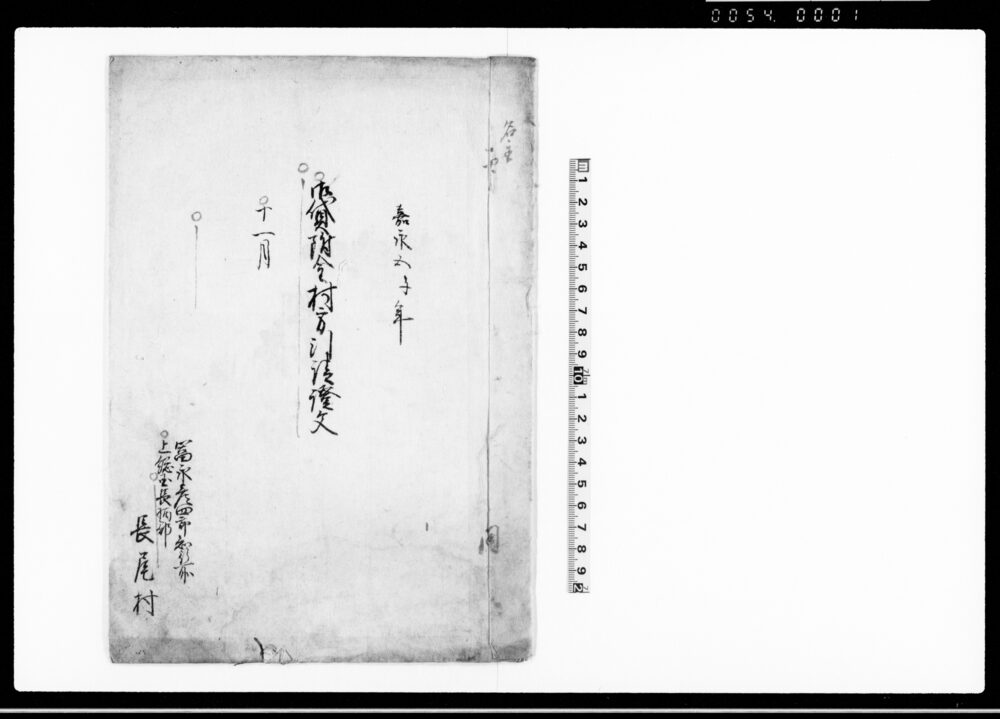 0054. 0001
嘉永五子年
御貸附金村方引請證文
十一月
冨永彦四郎知行所
上総国長柄郡
長尾村
1 2 3 4 5 6 7 8 9 10 1 2 3 4 5 6 7 8 9